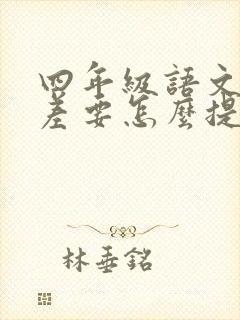 四年級語文
差要怎麼提
林垂銘